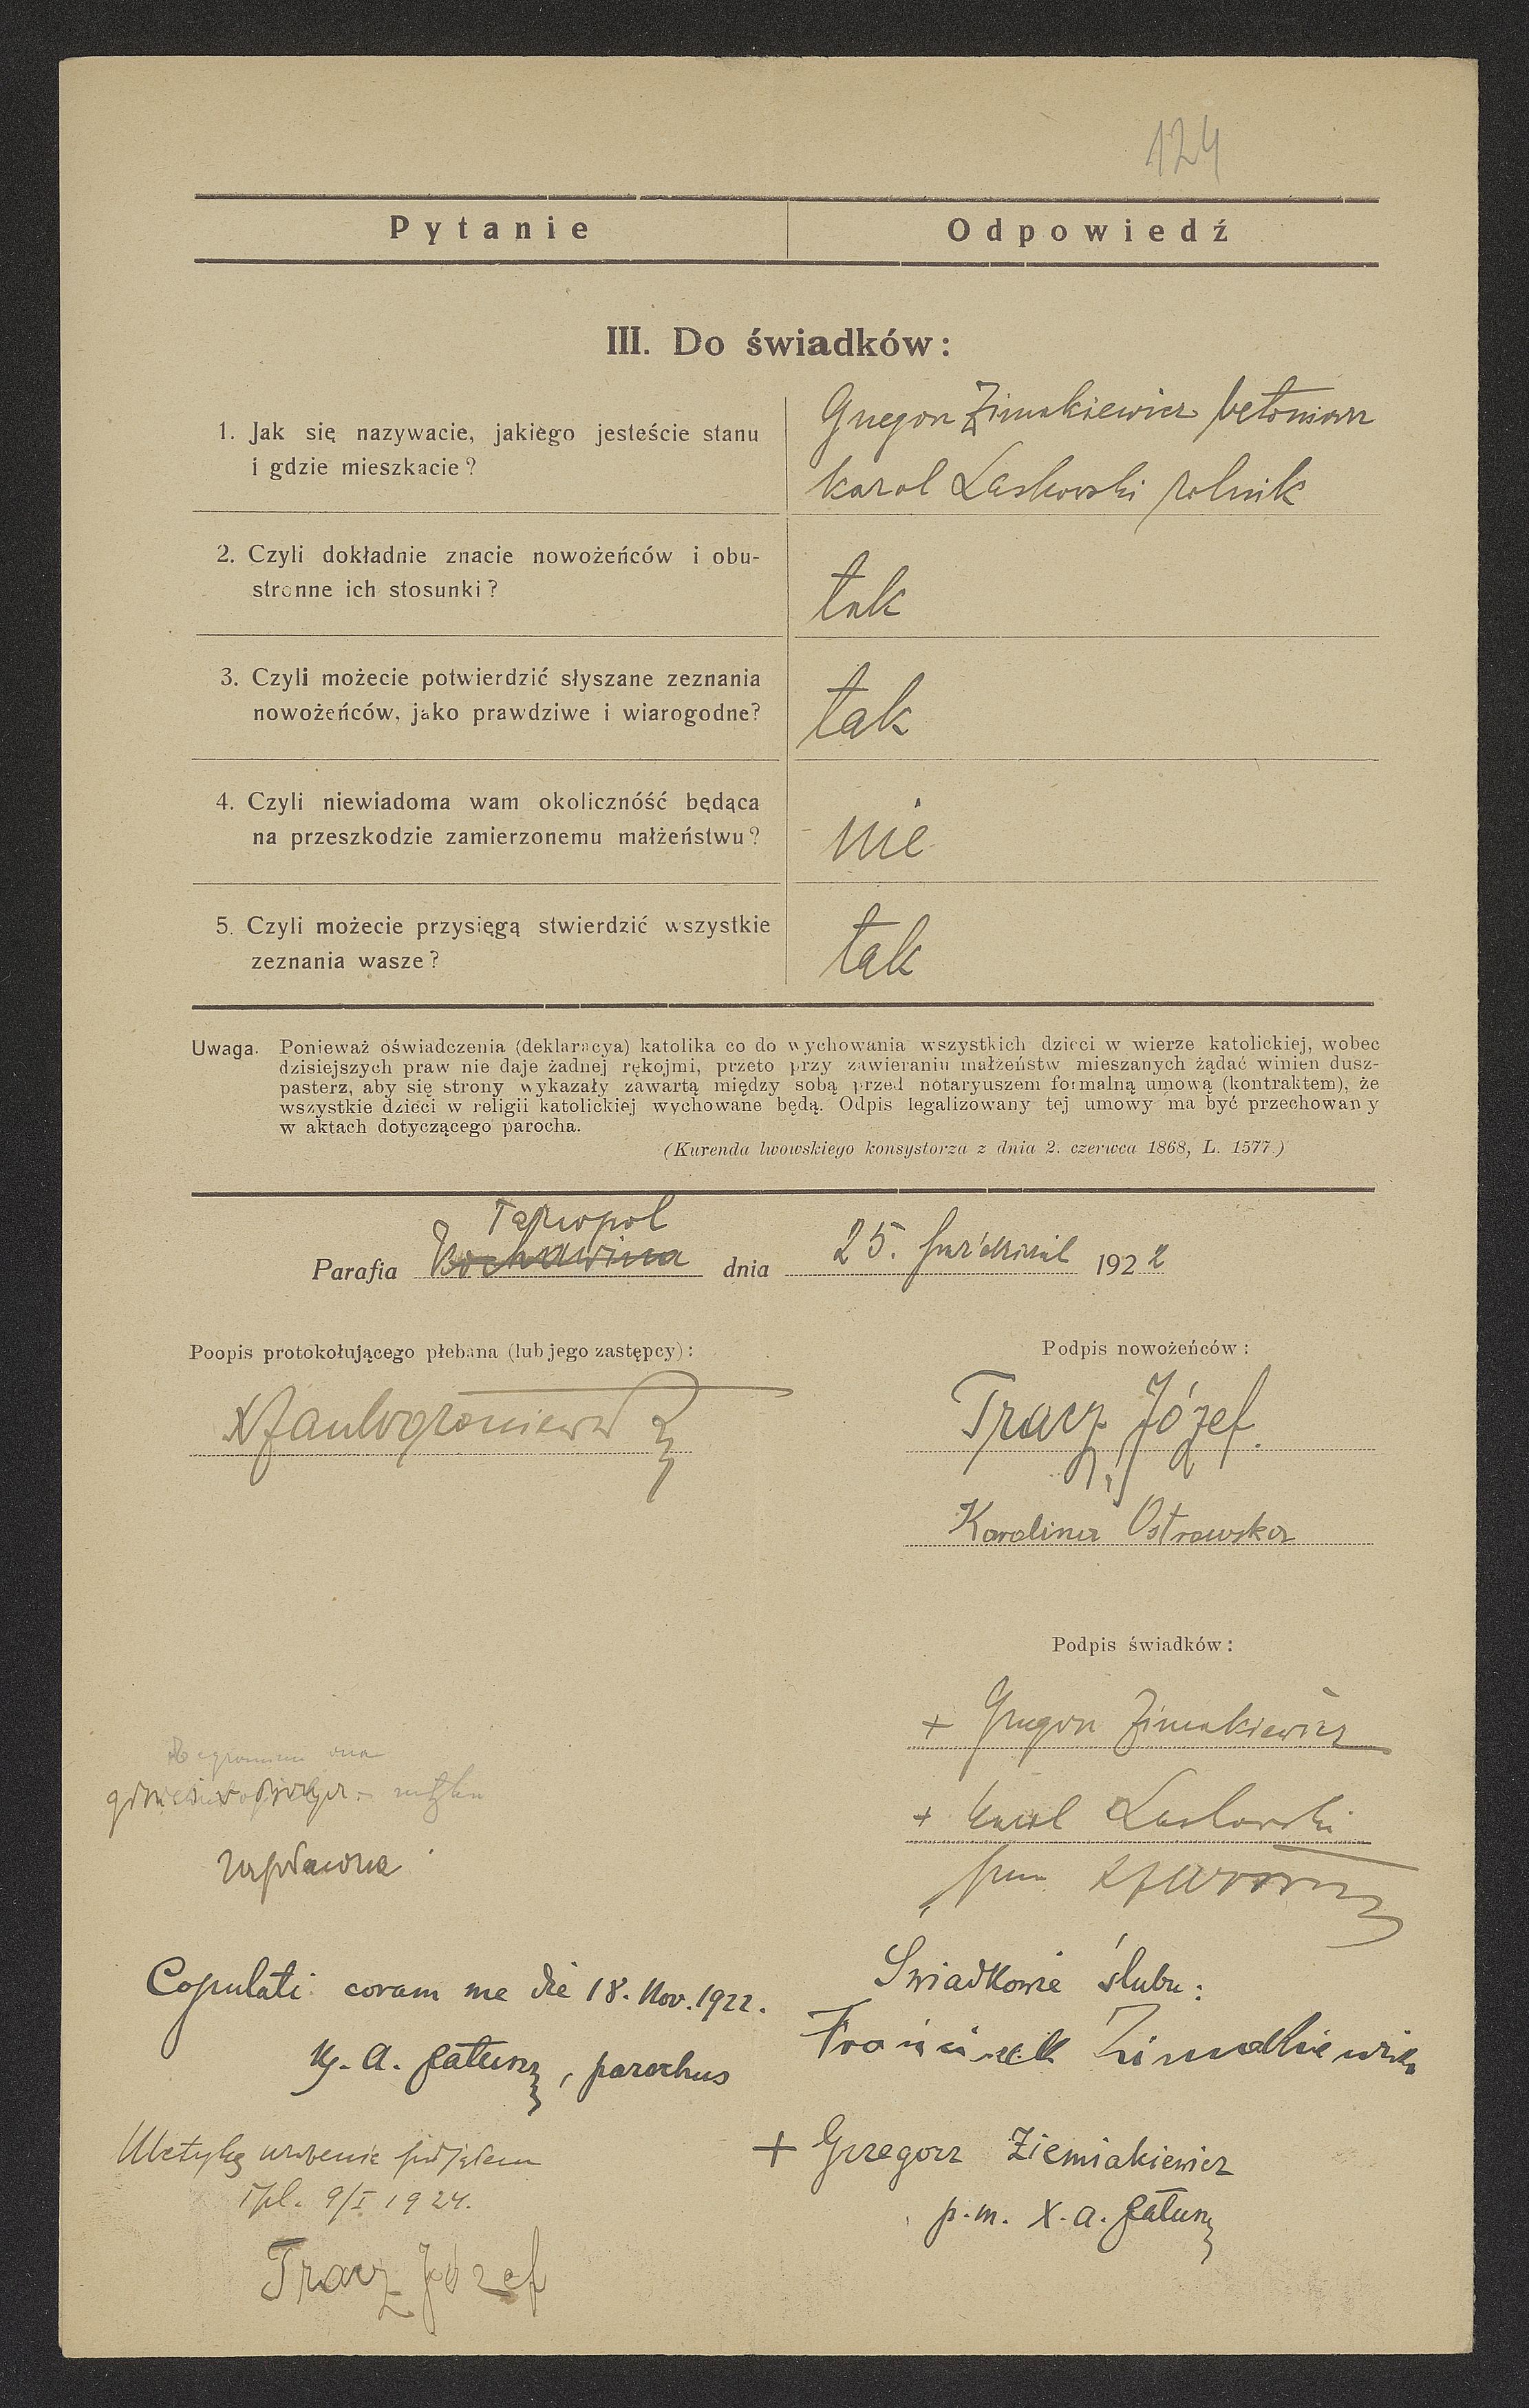 124
Pytanie
Odpowiedź
III. Do świadków:
1. Jak się nazywacie, jakiego jesteście stanu
i gdzie mieszkacie?
Zimakiewicz betoniarz
Karol Laskowski rolnik
2. Czyli dokładnie znacie nowożeńców i obu-
stronne ich stosunki?
tak
3. Czyli możecie potwierdzić słyszane zeznania
nowożeńców, jako prawdziwe i wiarogodne?
tak
4. Czyli niewiadoma wam okolicznóść będąca
na przeszkodzie zamierzonemu małżeństwu?
nie
5. Czyli możecie przysięgą stwierdzić wszystkie
zeznania wasze?
tak
Uwaga. Ponieważ oświadczenia (deklaracya) katolika co do wychowania wszystkich dzieci w wierze katolickiej, wobec
dzisiejszych praw nie daje żadnej rękojmi, przeto przy zawieraniu małżeństw mieszanych żądać winien dusz-
pasterz, aby się strony wykazały zawartą między sobą przed notaryuszem formalną umową (kontraktem), że
wszystkie dzieci w religii katolickiej wychowane będą. Odpis legalizowany tej umowy ma być przechowany
w aktach dotyczącego parocha.
(Kurenda lwowskiego konsystorza z dnia 2. czerwca 1868, L. 1577.)
Parafia dnia 25. października 1922
Poopis protokołującego plebana (lub jego zastępcy):
Podpis nowożeńców:
Tracz Józef.
Karolina Ostrowska
Podpis świadków:
+ Zimakiewicz
+ Karol Laskowski
Copulati coram me die 18. Nov. 1922.
A. Gałuszą, parochus
Swiadkowie ślubu:
Franciszek
+ Grzegorz Ziemiakiewicz
p.m. X. A.
Metykę
Tpl. 9/I 1924.
Tracz Józef